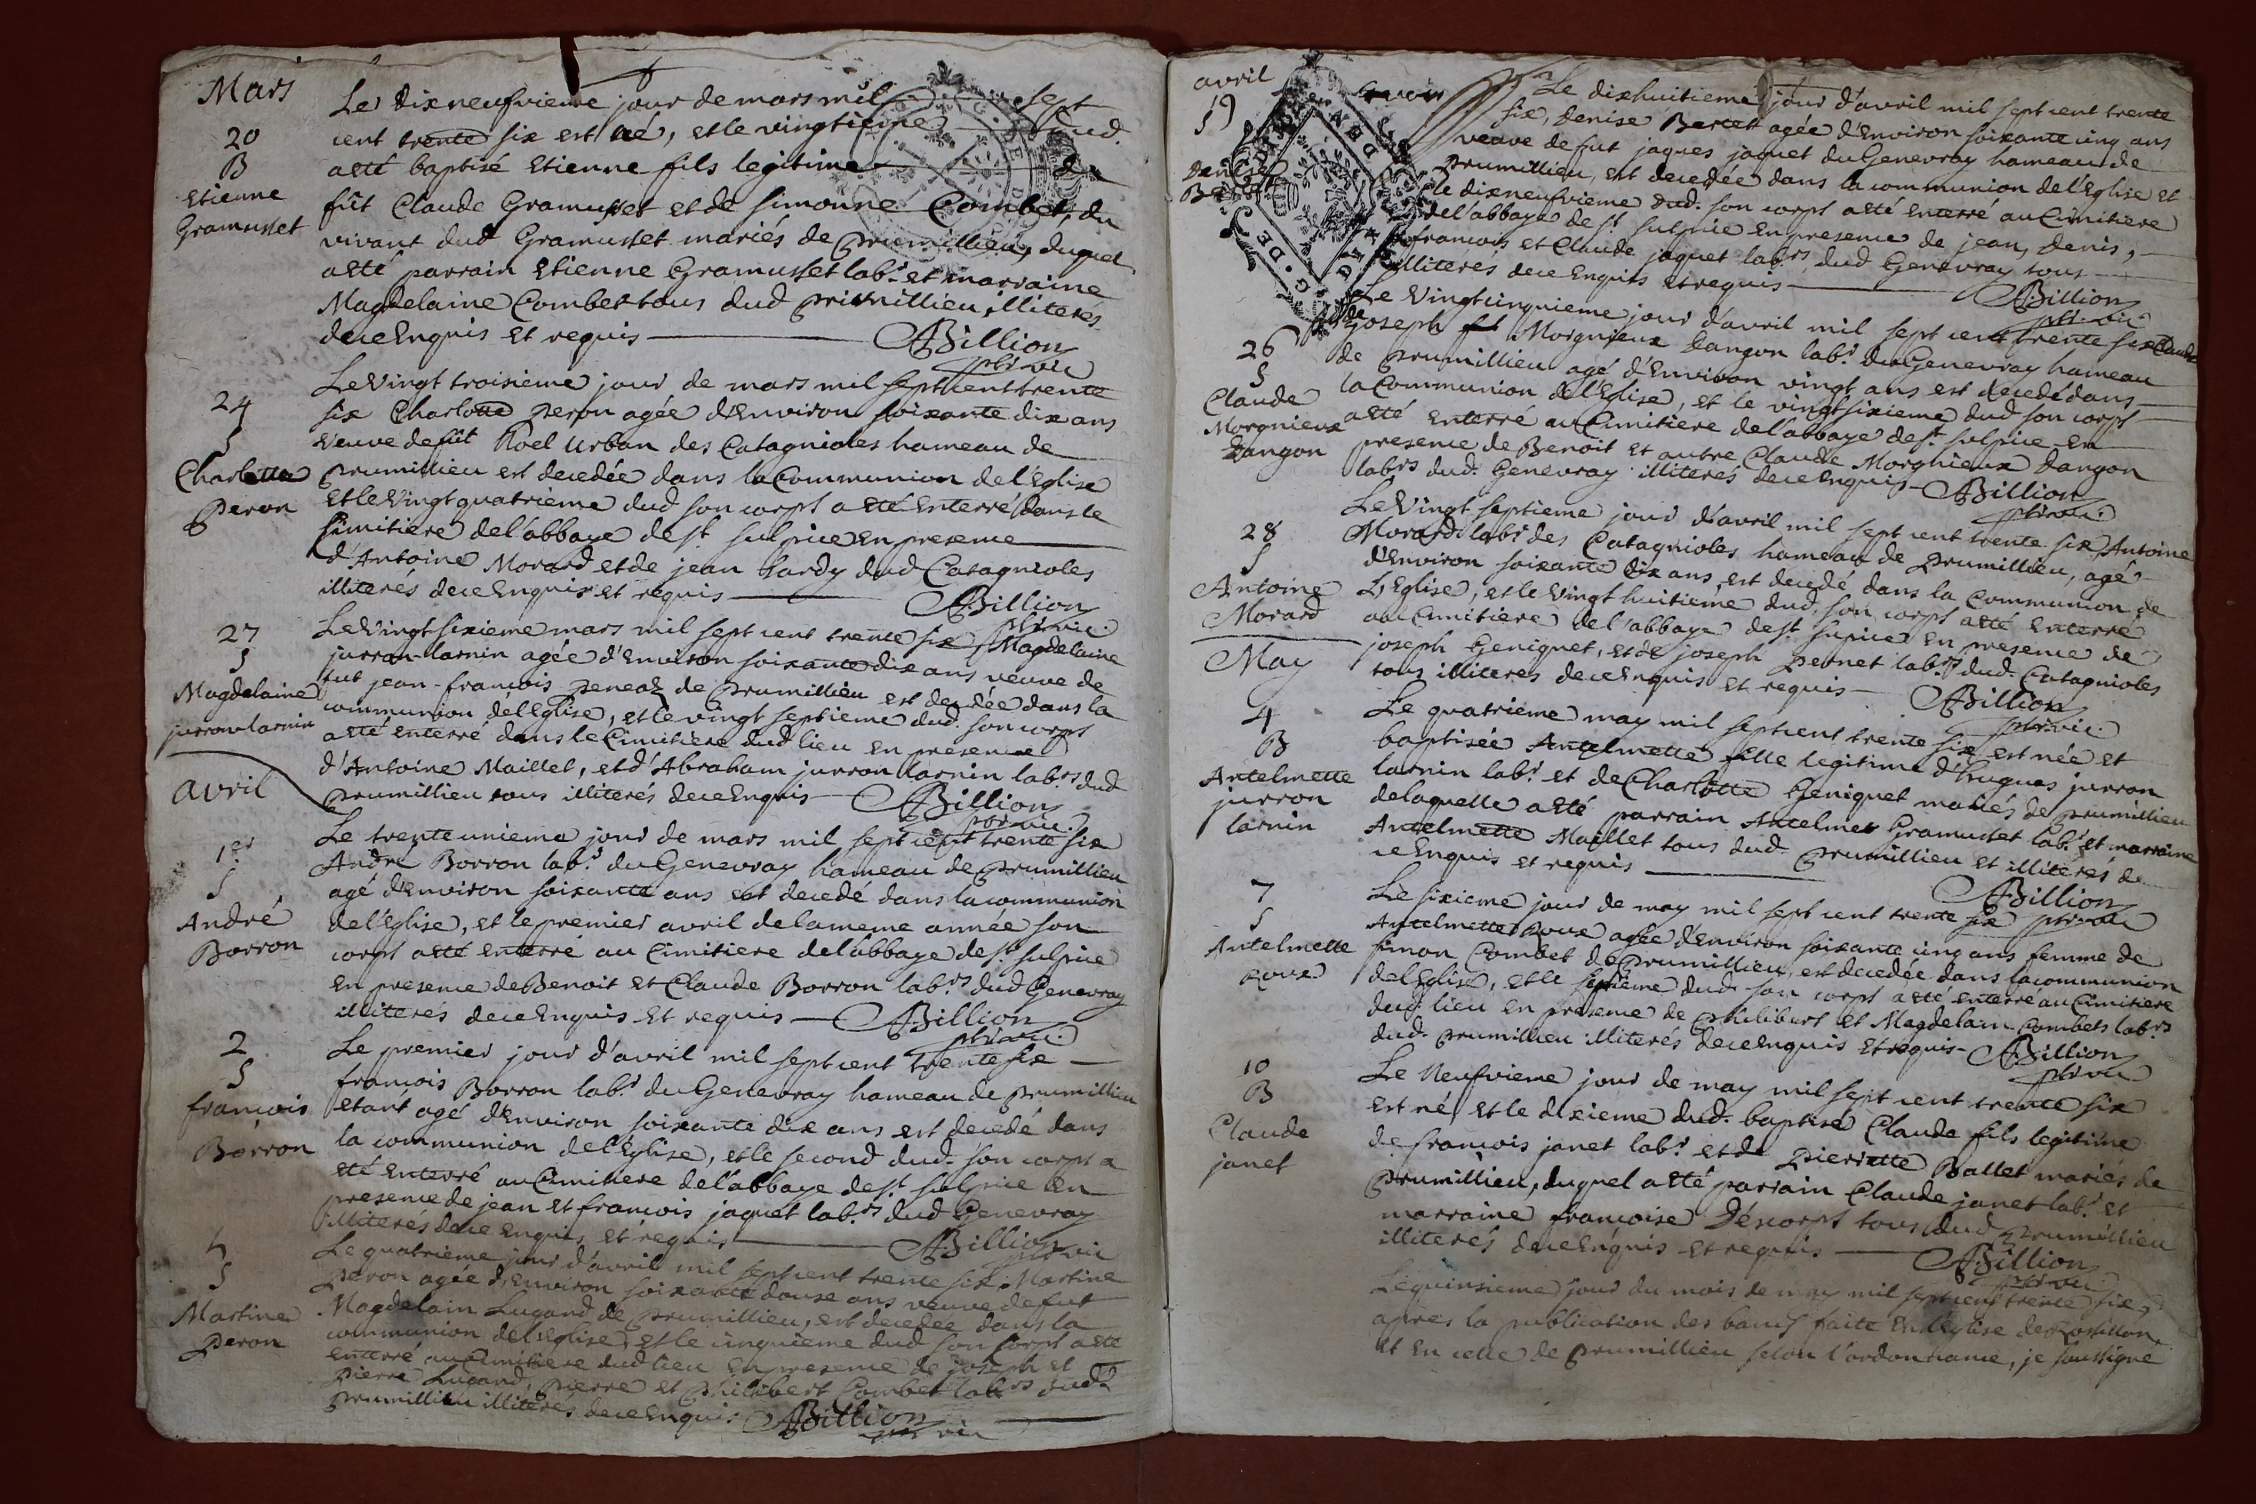 Mars
Le dixneufvieme jour de mars mil sept
20
cent trente six est né, et le vingtieme dud.
B
a eté baptisé Etienne fils legitime de
Etienne
fût Claude Gramusset et de Simonne Combet, du
Gramusset
vivant dud Gramusset mariés de prumillieu, duquel
a eté parrain Etienne Gramusset lab.r et marraine
Magdelaine Combet tous dud prumillieu illiteres
de ce Enquis et requis Billion
ptr. vic
Le Vingt troisieme jour de mars mil sept cent trente
24
six Charlotte peron agée d'Environ soixante dix ans
S
veuve de fût Noel Urban des Catagnioles hameau de
Charlotte
prumillieu est decedée dans la Communion de l'Eglise
peron
et le Vingt quatrieme dud son corps a eté Enterré dans le
Simitiere de l'abbaye de st. sulpice en presence
d'Antoine Morard et de jean bardy dud Catagnioles
illiterés de ce Enquis et requis Billion
ptr. vic.
27
Le Vingt sixieme mars mil sept cent trente six Magdelaine
S
jurron-larnin agée d'Environ soixante dix ans veuve de
fut jean-francois peneaz de prumillieu est decedée dans la
Magdelaine
communion de l'Eglise, et le vingt septieme dud. son corps
jurron larnin
a eté enterré dans le Cimitiere dud lieu en presence
d'Antoine Maillet, et d'Abraham jurron larnin lab.rs dud
avril
prumillieu tous illiterés de ce Enquis Billion
ptr. vic.
1er
Le trente unieme jour de mars mil sept cent trente six
S
André Borron lab.r du Genevray hameau de prumillieu
agé d'Environ soixante ans est decedé dans la communion
André
de l'Eglise, et le premier avril de la meme année son
Borron
corps a eté enterré au Cimitiere de l'abbaye de st. sulpice
en presence de Benoit et Claude Borron lab.rs dud Genevray
illiterés de ce Enquis et requis Billion
ptr. vic.
2
Le premier jour d'avril mil sept cent trente six
S
francois Borron lab.r du Genevray hameau de prumillieu
francois
etant agé d'Environ soixante dix ans est decedé dans
Borron
la communion de l'Eglise, et le second dud. son corps a
eté enterré au Cimitiere de l'abbaye de st. sulpice en
presence de jean et francois jaquet lab.rs dud Genevray
illiterés de ce enquis et requis Billion
ptr. vic
5
Le quatrieme jour d'avril mil sept cent trente six Martine
S
peron agée d'Environ soixante douze ans veuve de fut
Martine
Magdelain Lugand de prumillieu, est decedée dans la
peron
communion de l'Eglise, et le cinquieme dud son corps a eté
enterré au Cimitiere dud lieu en presence de joseph et
pierre Lugand, pierre et philibert Combet lab.rs dud.
prumillieu illiterés de ce Enquis Billion
ptr. vic
avril
Le dixhuitieme jour d'avril mil sept cent trente
19
six, denise Bertet agée d'Environ soixante cinq ans
S
veuve de fut jaques jaquet du Genevray hameau de
denise
prumillieu, est decedée dans la communion de l'Eglise et
le dixneufvieme dud. son corps a eté enterré au Cimitiere
de l'abbaye de st. sulpice en presence de jean, denis,
francois et Claude jaquet lab.rs dud Genevray tous
illiterés de ce Enquis et requis Billion
ptr. vic
Le Vingt cinquieme jour d'avril mil sept cent trente six Claude
26
joseph Morgnieux dangon lab.r du Genevray hameau
S
de prumillieu agé d'Environ vingt ans est decedé dans
Claude
la Communion de l'Eglise, et le vingt sixieme dud son corps
Morgnieux
a eté enterré au Cimitiere de l'abbaye de st. sulpice en
dangon
presence de Benoit et autre Claude Morgnieux dangon
lab.rs dud. Genevray illiterés de ce Enquis Billion
ptr. vic.
28
Le Vingt septieme jour d'avril mil sept cent trente six Antoine
S
Morard lab.r des Catagnioles hameau de prumillieu, agé
d'Environ soixante dix ans est decedé dans la Communion de
Antoine
L'Eglise, et le Vingt huitieme dud. son corps a eté enterré
Morard
au Cimitiere de l'abbaye de st. supice en presence de
May
joseph Geniquet, et de joseph pernet lab.rs dud. Catagnioles
tous illiterés de ce Enquis et requis Billion
ptr. vic.
4
Le quatrieme may mil sept cent trente six est née et
B
baptisée Antelmette fille legitime d'hugues jurron
Antelmette
larnin lab.r et de Charlotte Geniquet mariés de prumillieu
jurron
de laquelle a eté parrain Antelme Gramusset lab.r et marraine
larnin
Antelmette Maillet tous dud. prumillieu et illiterés de
ce Enquis et requis Billion
ptr. vic
7
Le sixieme jour de may mil sept cent trente six
S
Antelmette roux agée d'Environ soixante cinq ans femme de
Antelmette
simon Combet de prumillieu, est decedée dans la communion
roux
de l'Eglise, et le septieme dud. son corps a eté enterré au Cimitiere
dud. lieu en presence de philibert et Magdelain Combets lab.rs
dud. prumillieu illiterés de ce enquis et requis Billion
ptr. vic
10
Le Neufvieme jour de may mil sept cent trente six
B
est né, et le dixieme dud. baptisé Claude fils legitime
Claude
de francois janet lab.r et de pierrette Ballet mariés de
janet
prumillieu, duquel a eté parrain Claude janet lab.r et
marraine francoise Décorps tous dud prumillieu
illiterés de ce Enquis et requis Billion
ptr. vic.
Le quinsieme jour du mois de may mil sept cent trente six,
apres la publication des bancs faite en l'Eglise de Rossillon
et En celle de prumillieu selon l'ordonnance, je soussigné